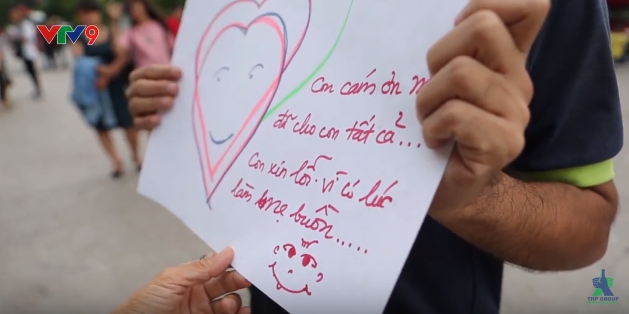 VTV9
Con cám ơn
đã cho con tất cả...
Con xin lỗi vì có lúc
làm mẹ buồn.....
THP GROUP